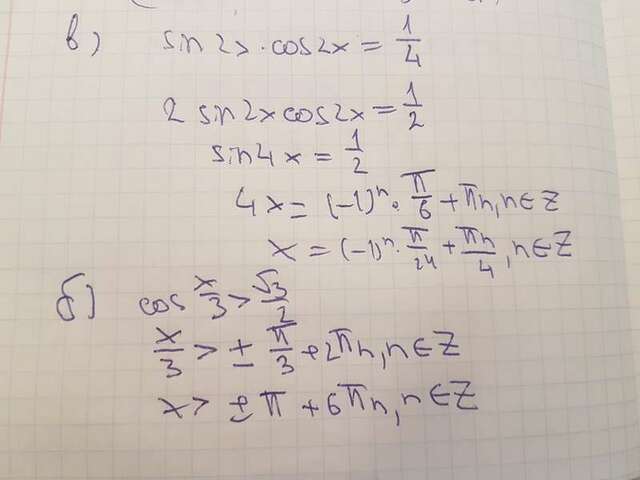 в) sin 2x · cos2x = 1/4
2 sin2x cos2x = 1/2
sin4x = 1/2
4x = (-1)ⁿ · π/6 + πn, n∈Z
x = (-1)ⁿ · π/24 + πn/4, n∈Z
б) cos x/3 > √3/2
x/3 > ± π/3 + 2πn, n∈Z
x > ± π + 6πn, n∈Z